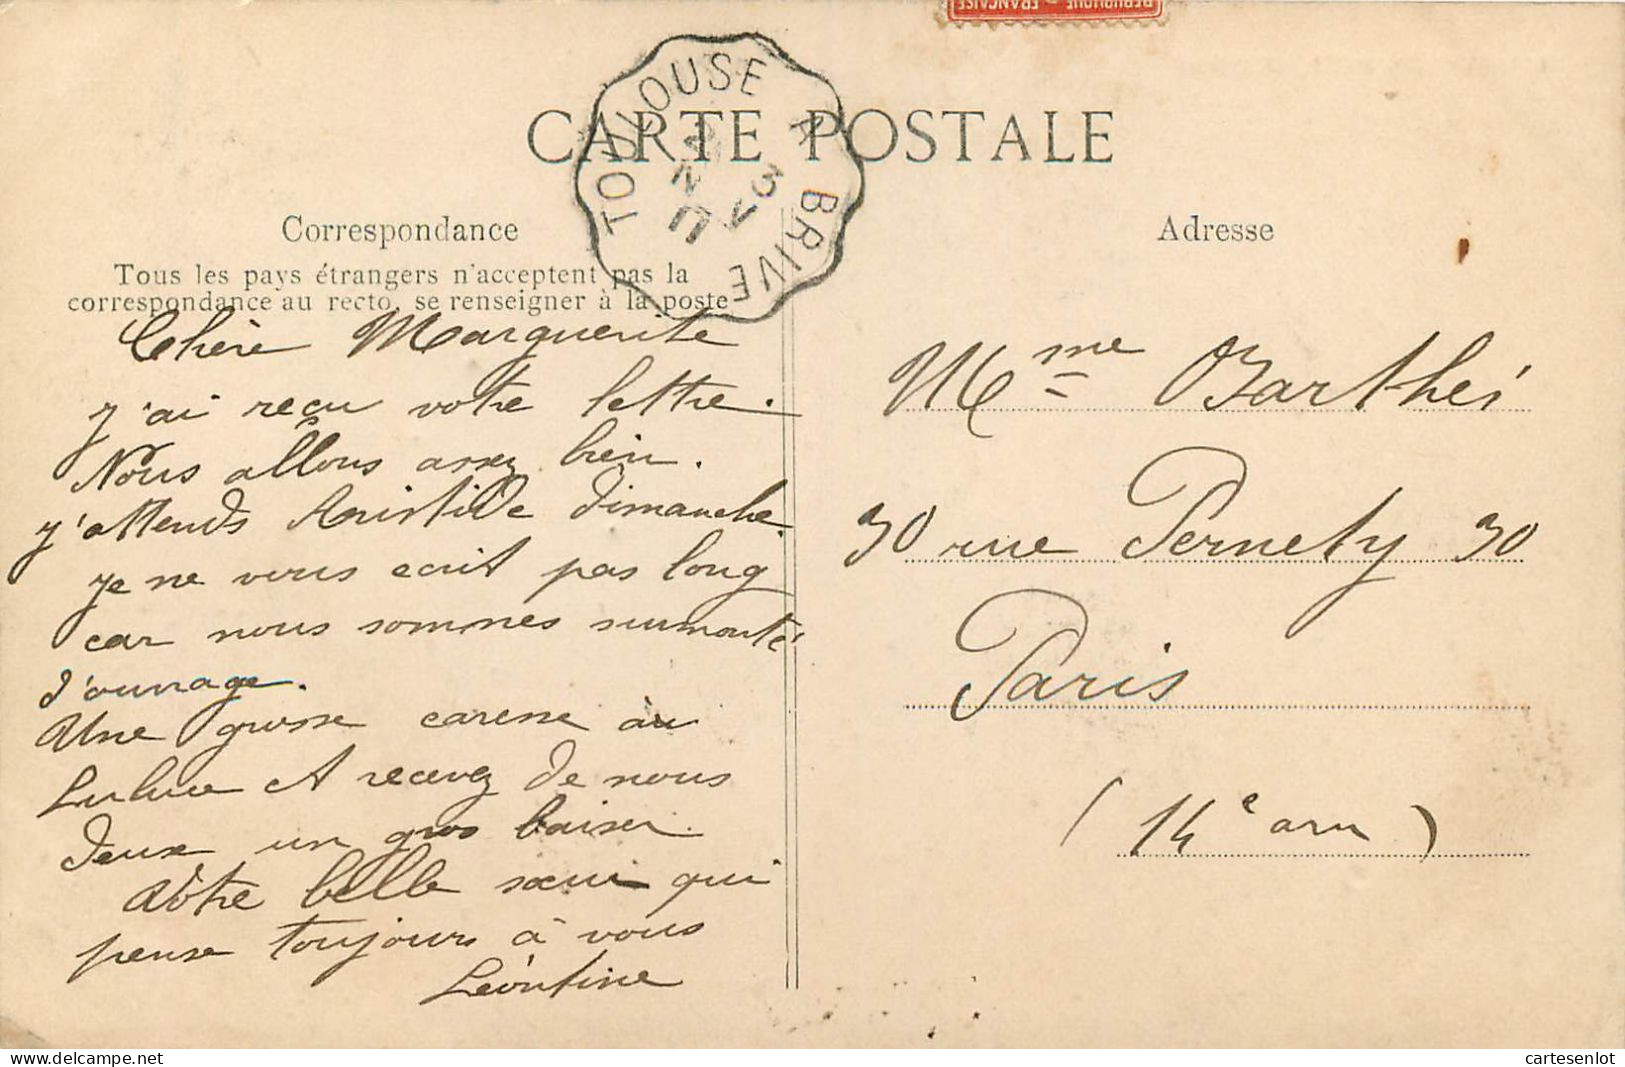 REPUBLIQUE FRANÇAISE
TOULOUSE A BRIVE
3
CARTE POSTALE
Correspondance
Tous les pays étrangers n'acceptent pas la
correspondance au recto, se renseigner à la poste
Chère Marguerite
j'ai reçu votre lettre.
Nous allons assez bien.
j'attends Aristide dimanche
je ne vous ecrit pas long
car nous sommes surmonté
d'ouvrage.
Une grosse caresse au
Lulue et recevez de nous
deux un gros baiser.
Votre belle sœur qui
pense toujours à vous
Léontine
Adresse
Mme Barthés
30 rue Pernety 30
Paris
(14e arr)
cartesenlot